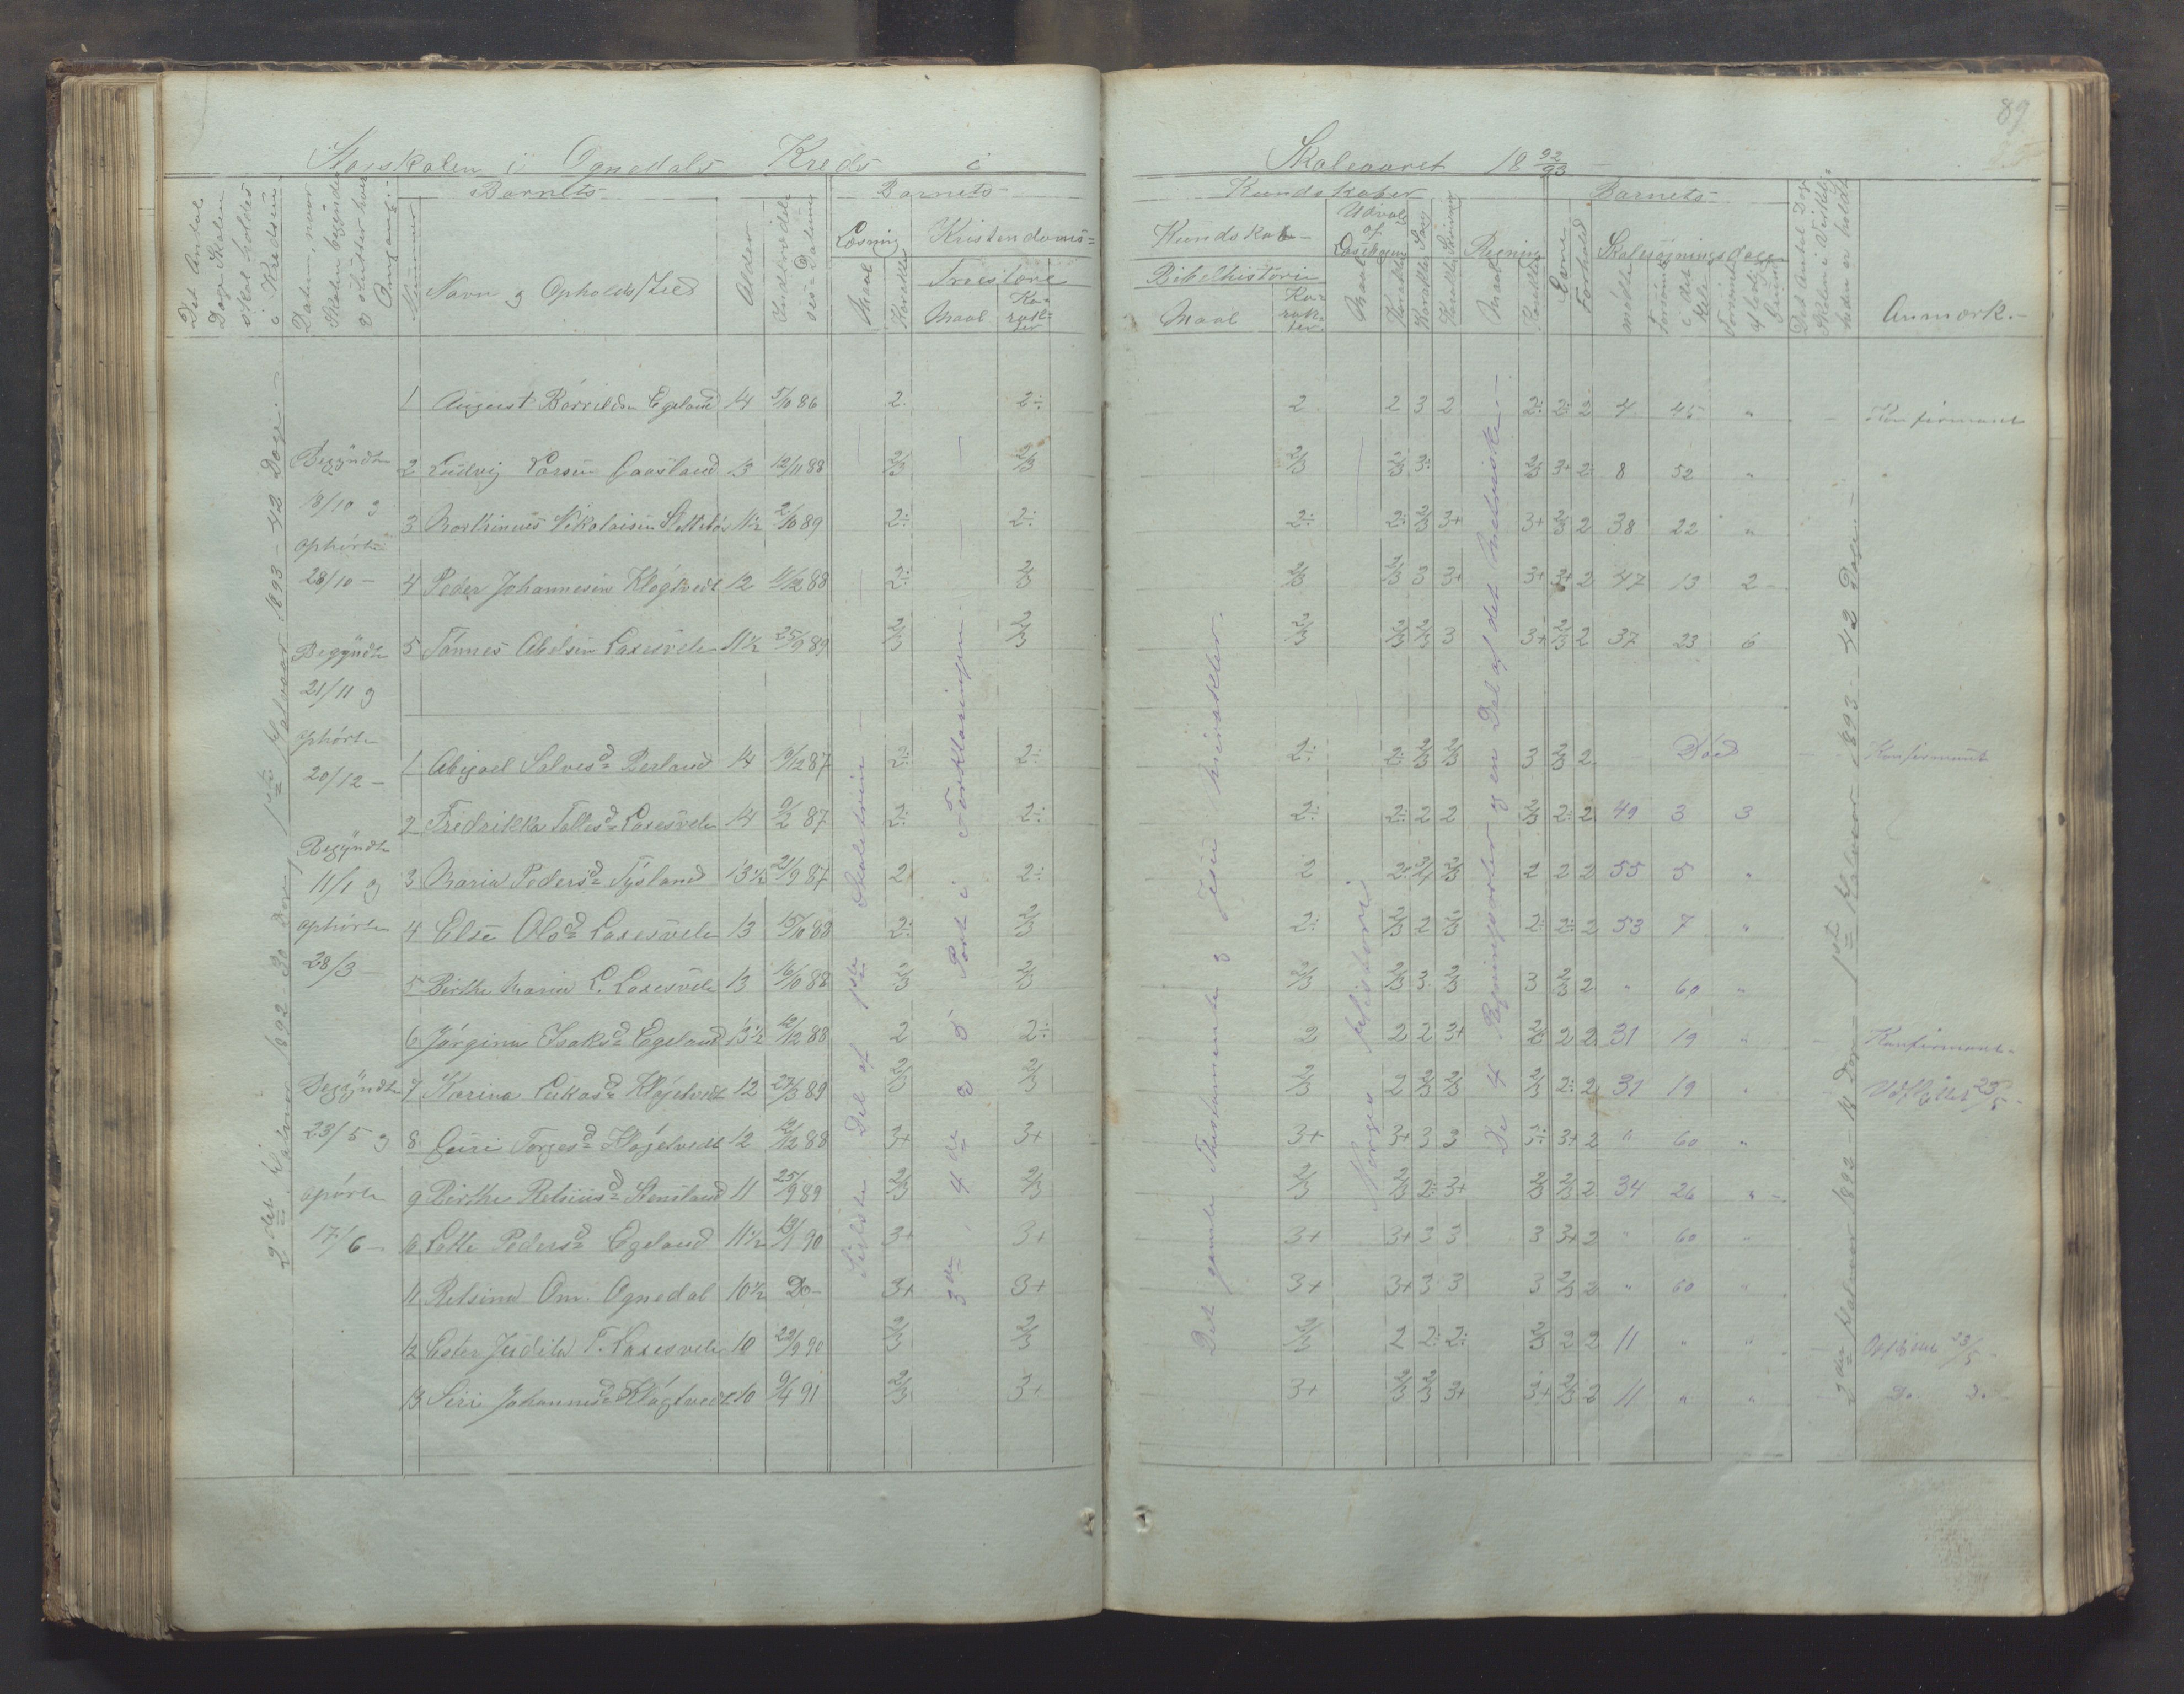 89
Storskolen i Ognedals Kreds i Skoleaaret 18 92/93
Det Antal Dage Skolen skal holdes i Kredsen
Datum, naar Skolen begynder og slutter hver Omgang
Barnets
Nummer
Navn og Opholds/Sted
Alder
Indtrædelses-Datum
Barnets
Læsning
Maal
Karakter
Kristendoms-
Troeslære
Maal
Karakter
Kundskaber
Kundskab
Bibelhistorie
Maal
Karakter
Udvalg af Læsebogen
Maal
Karakter
Karakter Sang
Karakter Skrivning
Regning
Maal
Karakter
Evne
Forhold
Barnets
Skolesøgningsdage
mødte
forsømte i det Hele
forsømte af lovlig Grund
Det Antal Dage Skolen i Virkeligheden er holdt
Anmærk.
2det Halvaar 1892 - 30 Dage 1ste Halvaar 1893 - 42 Dage
Begyndte 18/10 og ophørte 28/10
Begyndte 21/11 og ophørte 20/12
Begyndte 11/1 og ophørte 28/3
Begyndte 23/5 og opørte 17/6
1 August Børrildsn Egeland 14 5/10 86 2 2÷ 2 2 3 2 2÷ 2÷ 2 4 45 " Konfirmant
2 Ludvig Larsen Gaasland 13 12/11 88 2/3 2/3 2/3 2/3 3÷ 2/3 3+ 2 8 52 "
3 Marthinues Nikolaisen Slettebø 11½ 2/10 89 2÷ 2÷ 2÷ 2÷ 2/3 3+ 3+ 2/3 2 38 22 "
4 Peder Johannesen Kløgtvedt 12 4/12 88 2÷ 2/3 2/3 2/3 3 3+ 3+ 3+ 2 47 13 2
5 Tønnes Abelsen Laxesvele 11½ 25/9 89 2/3 2/3 2/3 2/3 2/3 3 3+ 2/3 2 37 23 6
1 Abigael Salvesd Berland 14 9/12 87 2÷ 2÷ 2÷ 2÷ 2/3 2/3 3 2/3 2 Død Konfirmant
2 Fredrikka Tollesd Laxesvele 14 9/2 87 2÷ 2÷ 2÷ 2÷ 2 2 2/3 2÷ 2 49 3 3
3 Maria Pedersd Tysland 13½ 21/9 87 2 2÷ 2 2÷ 3/4 2/3 2 2 2 55 5 "
4 Else Olsd Laxesvele 13 15/10 88 2÷ 2/3 2÷ 2/3 2 2/3 2÷ 2÷ 2 53 7 "
5 Birthe Maria L. Laxesvele 13 16/10 88 2/3 2/3 2/3 2/3 3 2/3 3 2/3 2 " 60 "
6 Jørgine Isaksd Egeland 13½ 12/12 88 2 2÷ 2 2 2 3+ 2/3 2 2 31 19 " Konfirmant
7 Karina Lukasd Kløgetvedt 12 27/3 89 2/3 2/3 2/3 2 2/3 2/3 2/3 2÷ 2 31 19 " Udflyttet 23/5
8 Guri Torgesd Kløgetvedt 12 12/12 88 3+ 3+ 3+ 3+ 3 3 3÷ 3+ 2 " 60 "
9 Birthe Retsiusd Stensland 11 25/9 89 2/3 2/3 2/3 2/3 2÷ 3+ 2/3 2/3 2 34 26 "
10 Lotte Pedersd Egeland 11½ 19/1 90 3+ 3+ 3+ 3+ 3 3 3 3+ 2 " 60 "
11 Retsine Om. Ognedal 10½ Do 3+ 3+ 3+ 3+ 3 3 3 2/3 2 " 60 "
12 Ester Judita T. Laxesvele 10 22/9 90 2/3 2/3 2/3 2 2÷ 2÷ 2/3 2 2 11 " "
13 Siri Johannesd Kløgtvedt 10 9/4 91 2/3 3+ 3+ 2/3 2/3 3+ 3+ 2/3 2 11 " " Do. Do.
Sidste Del af 1ste Skoletrin
3die 4de og 5 Part i Forklaringen
Det gamle Thestamente og Jesu Mirakler.
Norges Historie
De 4 Regningsarter og en Del af det Metriske
2det Halvaar 1892 - 18 Dage 1ste Halvaar 1893 - 42 Dage